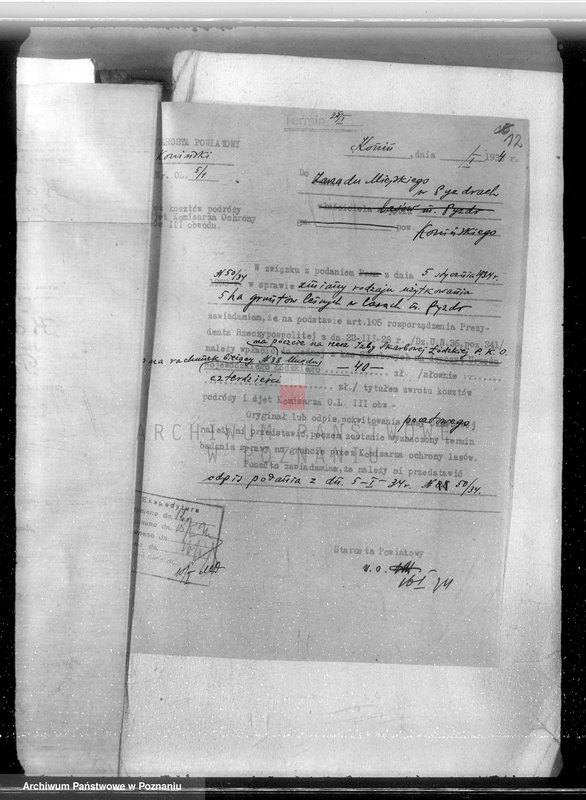 Archiwum Państwowe w Poznaniu
Termin 25/I
12
STAROSTA POWIATOWY
Koniński
Nr. OL. 5/1
Konin, dnia /I 1934 r.
Do
Zarządu Miejskiego
w Pyzdrach
właściciela lasów m. Pyzdr
pow. Konińskiego
kosztów podróży
djet Komisarza Ochrony
III obwodu.
W związku z podaniem Pana z dnia 5 stycznia 1934 r.
N 50/34 w sprawie zmiany rodzaju użytkowania
5 ha gruntów leśnych w lasach m. Pyzdr
zawiadamiam, że na podstawie art. 105 rozporządzenia Prezy-
denta Rzeczypospolitej z dn 22-III-28 r. /Dz.U.N.36, poz. 341/
na poczcie na rzecz Izby Skarbowej Łódzkiej P.K.O.
należy wpłacić
na rachunek
wojewódzkiego Łódzkiego -40- zł. /słownie
czterdzieści zł./ tytułem zwrotu kosztów
podróży i djet Komisarza O.L III obw.
Oryginał lub odpis pokwitowania pocztowego
należy mi przedstawić, poczem zostanie wyznaczony termin
badania sprawy na gruncie przez Komisarza ochrony lasów.
Ponadto zawiadamiam, że należy mi przedstawić
odpis podania z dn. 5-I-34 r. N 50/34.
ARCHIWUM PAŃSTWOWE
W POZNANIU
Ekspedytura
Starosta Powiatowy
Archiwum Państwowe w Poznaniu